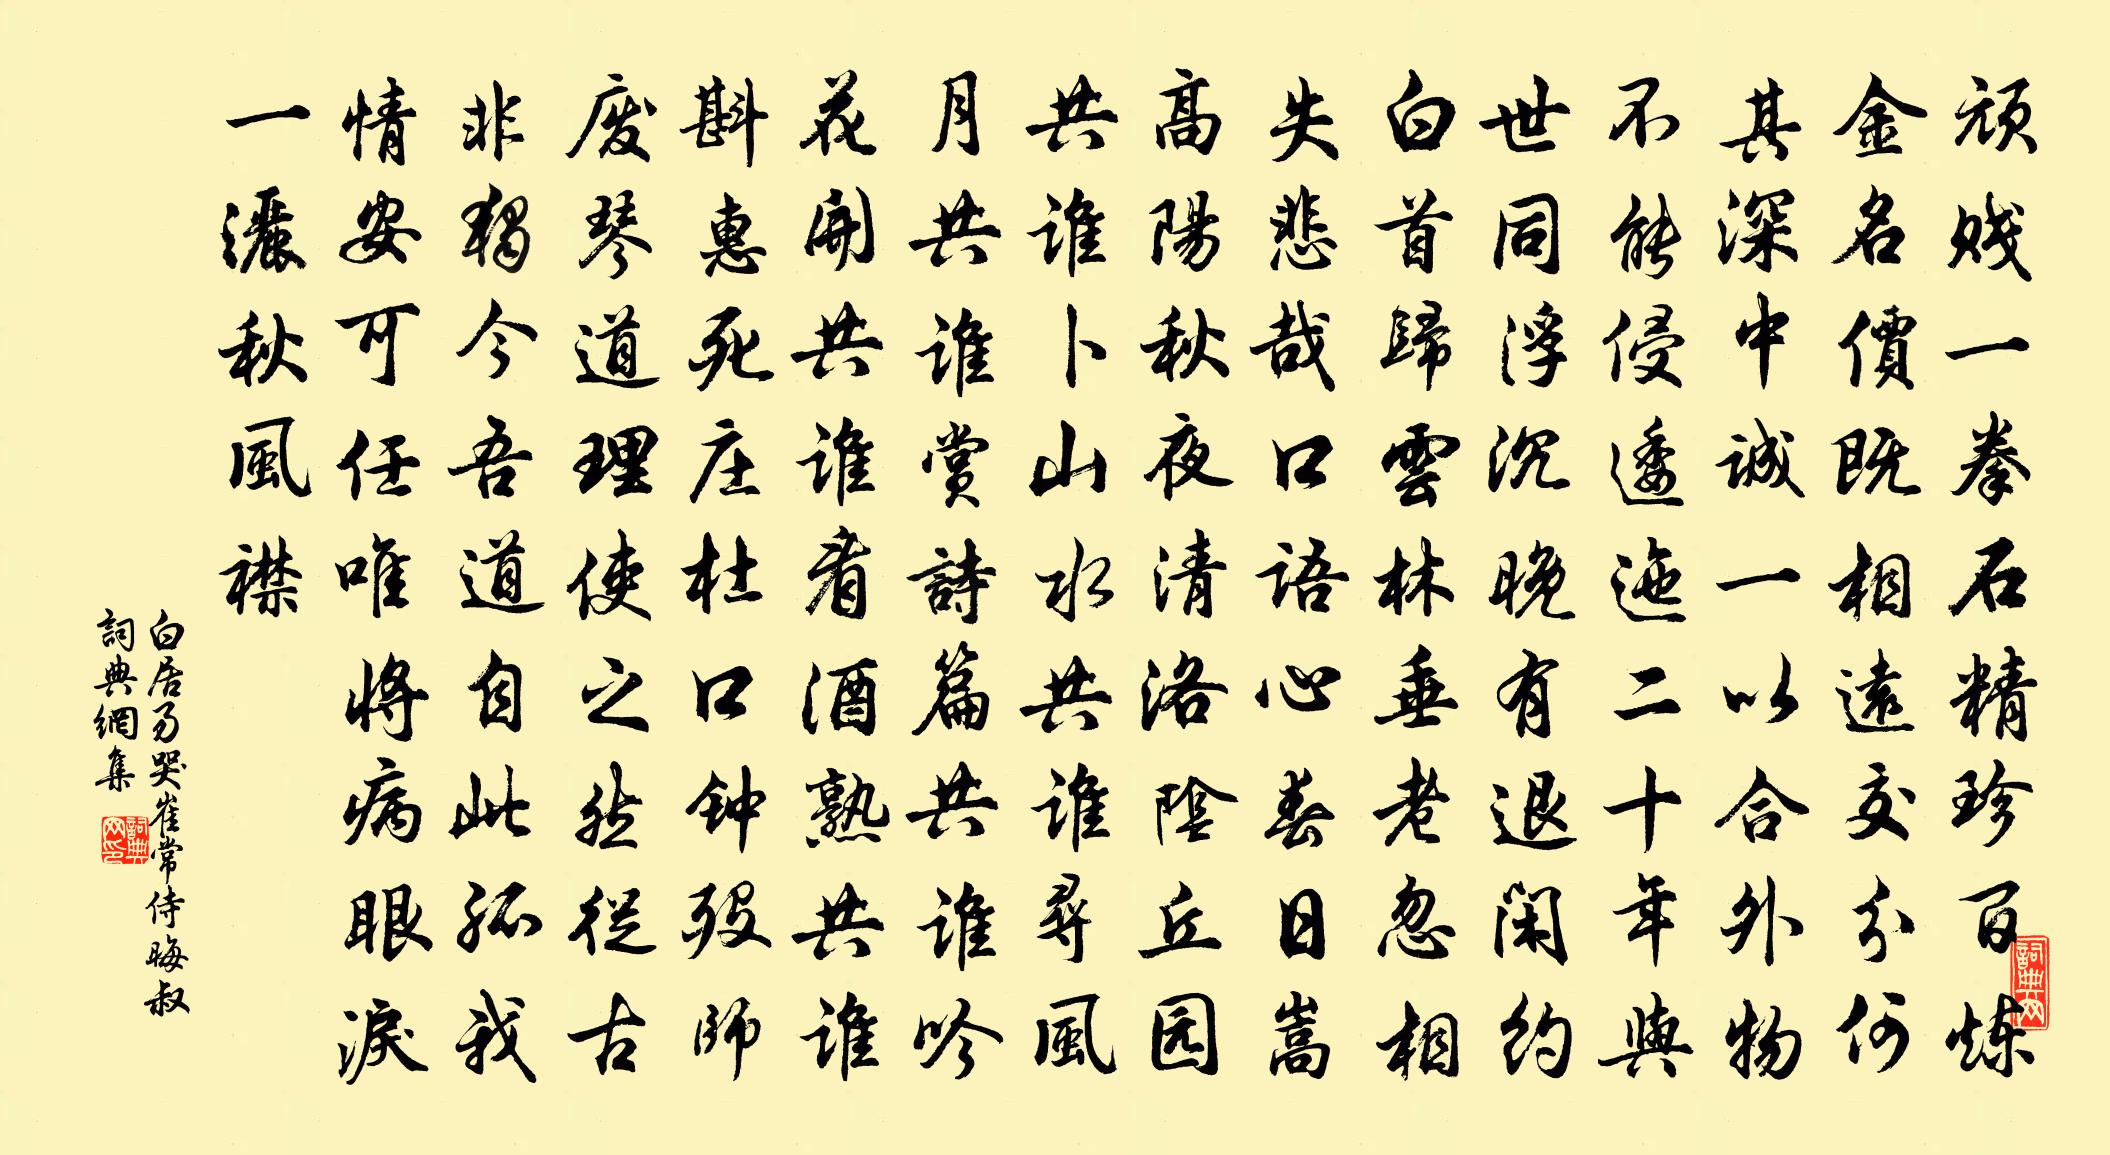 頑贱一拳石精珍百炼
金名價既相遠交分何
其深中诚一以合外物
不能侵逶迤二十年與
世同浮沉晚有退闲约
白首歸雲林垂老忽相
失悲哉口语心春日嵩
高陽秋夜清洛陰丘园
共谁卜山水共谁尋風
月共谁赏詩篇共谁吟
花開共谁看酒熟共谁
斟惠死庄杜口钟殁師
废琴道理使之然從古
非独今吾道自此孤我
情安可任唯将病眼淚
一灑秋風襟
白居易哭崔常侍晦叔
詞典網集
詞典网
詞典网印